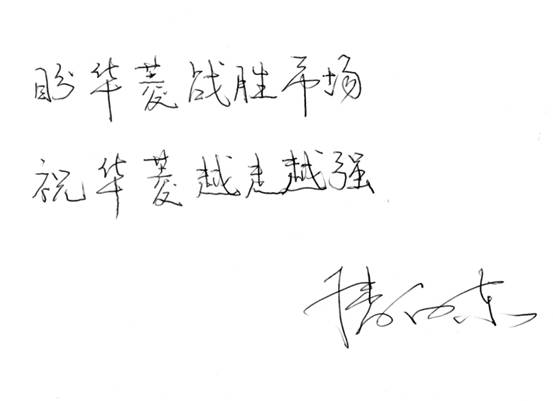 盼华菱战胜市场
祝华菱越走越强